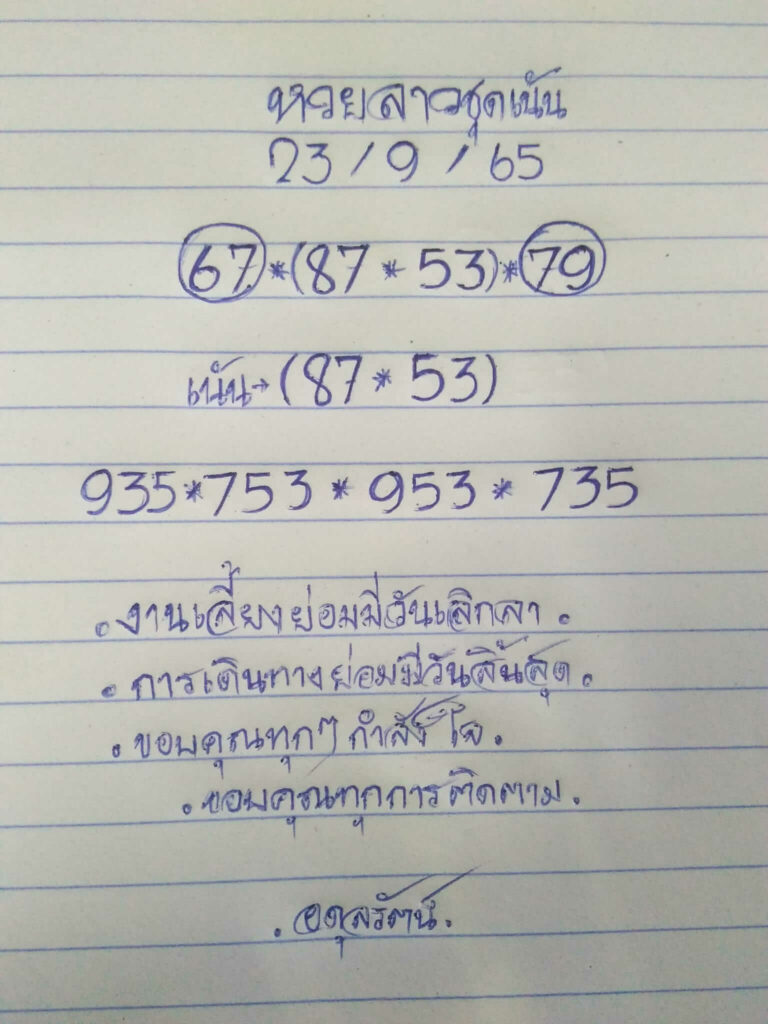 หวยลาวชุดเน้น
23 / 9 / 65
67*(87 * 53)*79
เน้น→(87 * 53)
935*753 * 953 * 735
. งานเลี้ยงย่อมมีวันเลิกลา .
. การเดินทางย่อมมีวันสิ้นสุด .
. ขอบคุณทุกๆ กำลังใจ .
. ขอบคุณทุกการติดตาม .
. อดุลรัตน์ .